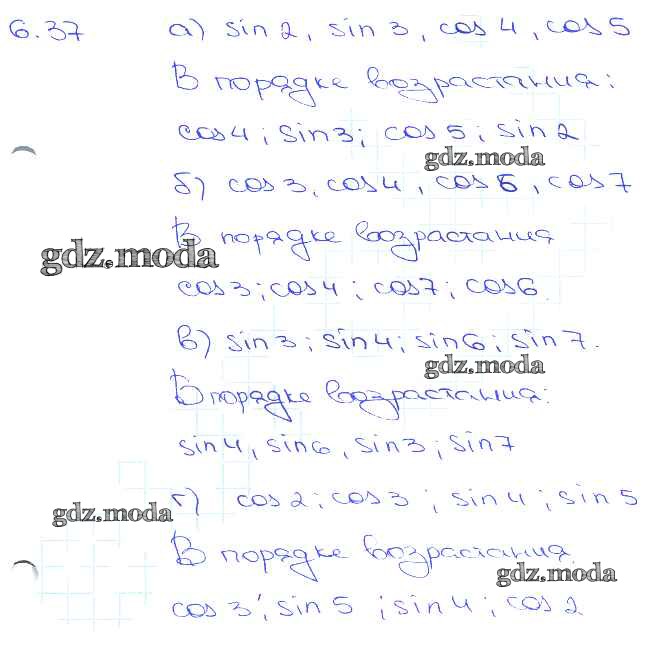 6.37 а) sin 2, sin 3, cos 4, cos 5
В порядке возрастания:
cos 4; sin 3; cos 5; sin 2
gdz.moda
б) cos 3, cos 4, cos 6, cos 7
В порядке возрастания
gdz.moda
cos 3; cos 4; cos 7; cos 6
в) sin 3; sin 4; sin 6; sin 7.
gdz.moda
В порядке возрастания:
sin 4, sin 6, sin 3; sin 7
г) cos 2; cos 3; sin 4; sin 5
gdz.moda
В порядке возрастания
gdz.moda
cos 3; sin 5; sin 4; cos 2